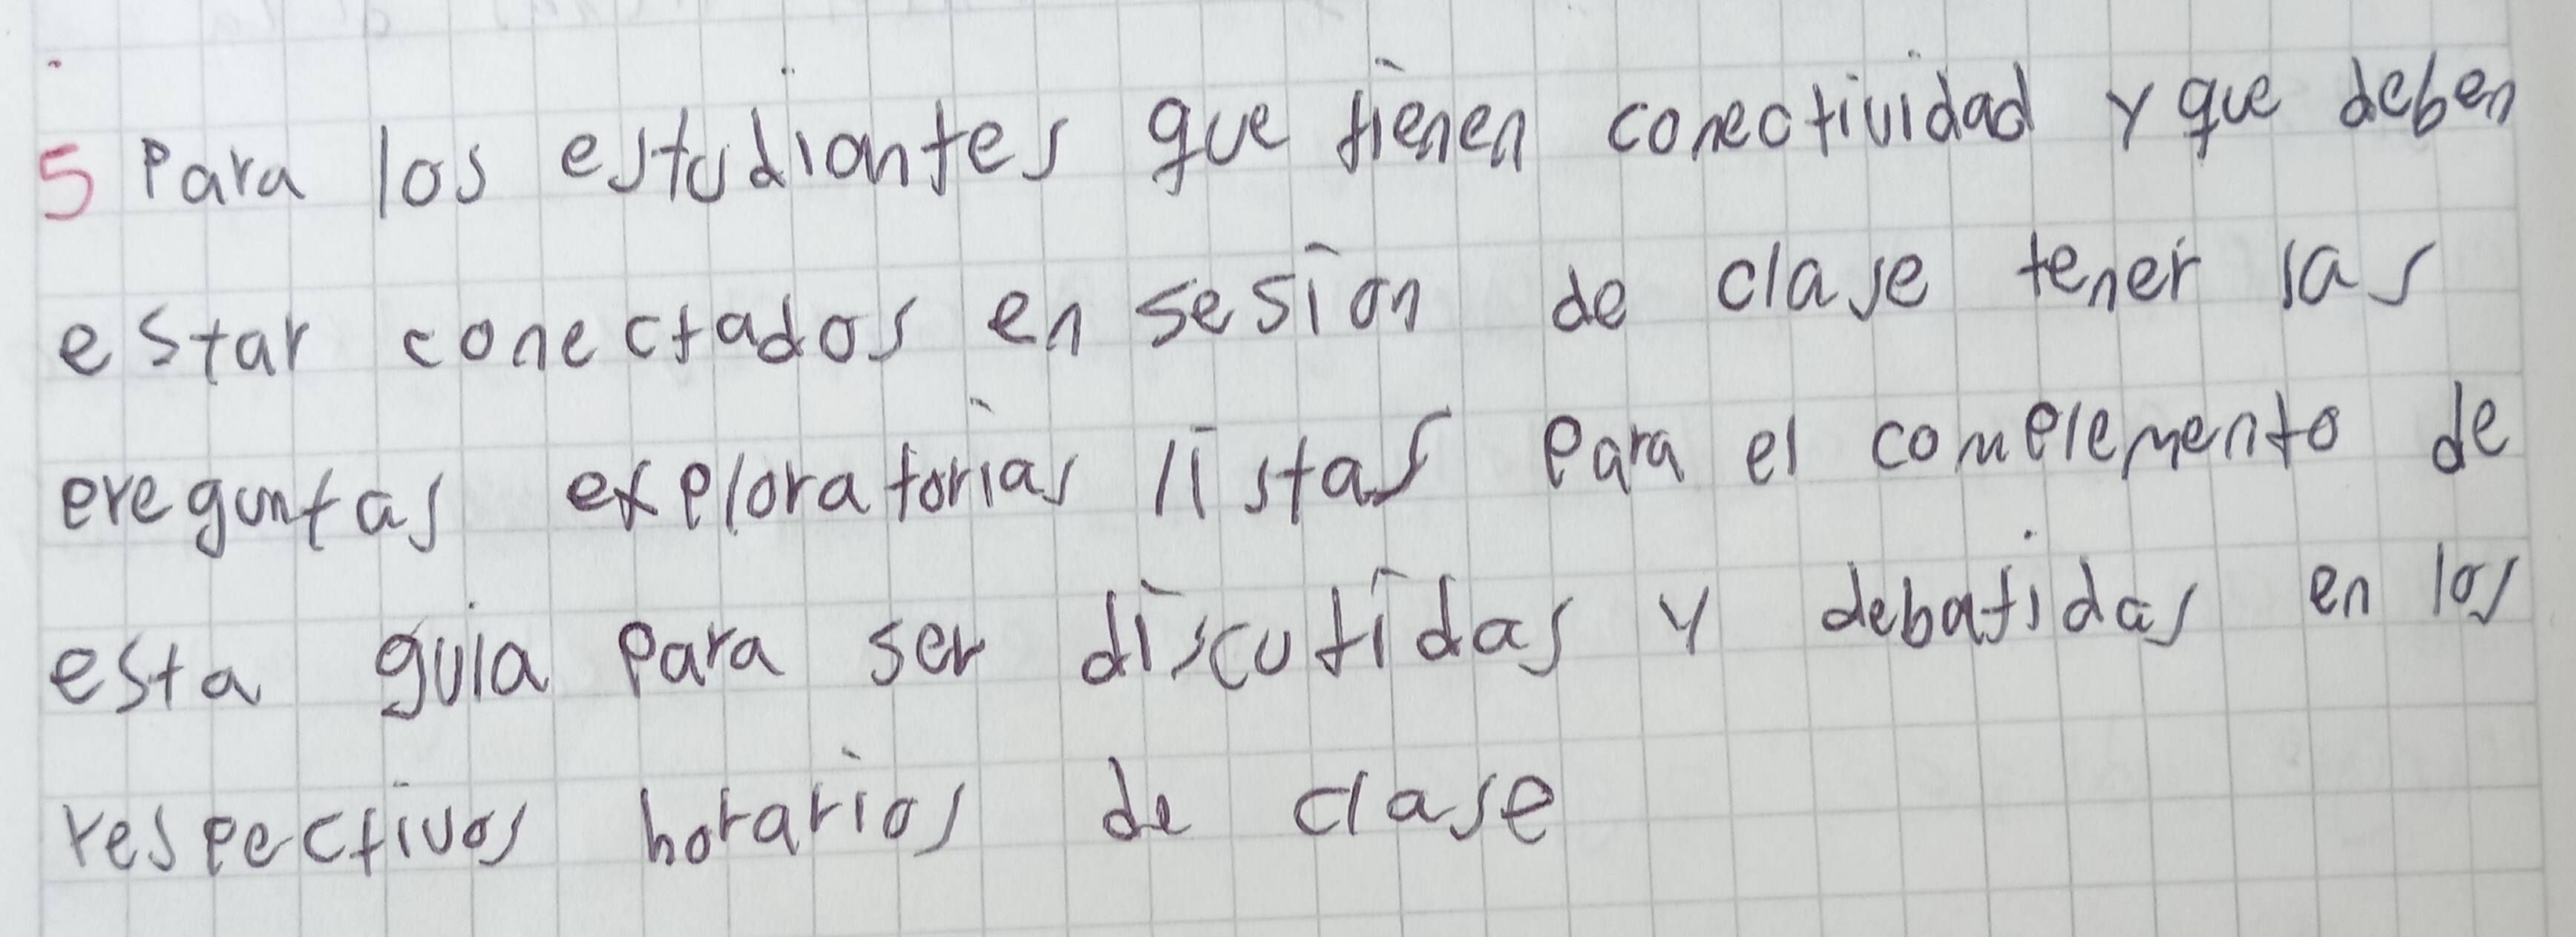 5 Para los estudiantes que tienen conectividad y que deben
estar conectados en sesion de clase tener las
preguntas exploratorias listas para el complemento de
esta guia para ser discutidas y debatidas en los
respectivos horarios de clase